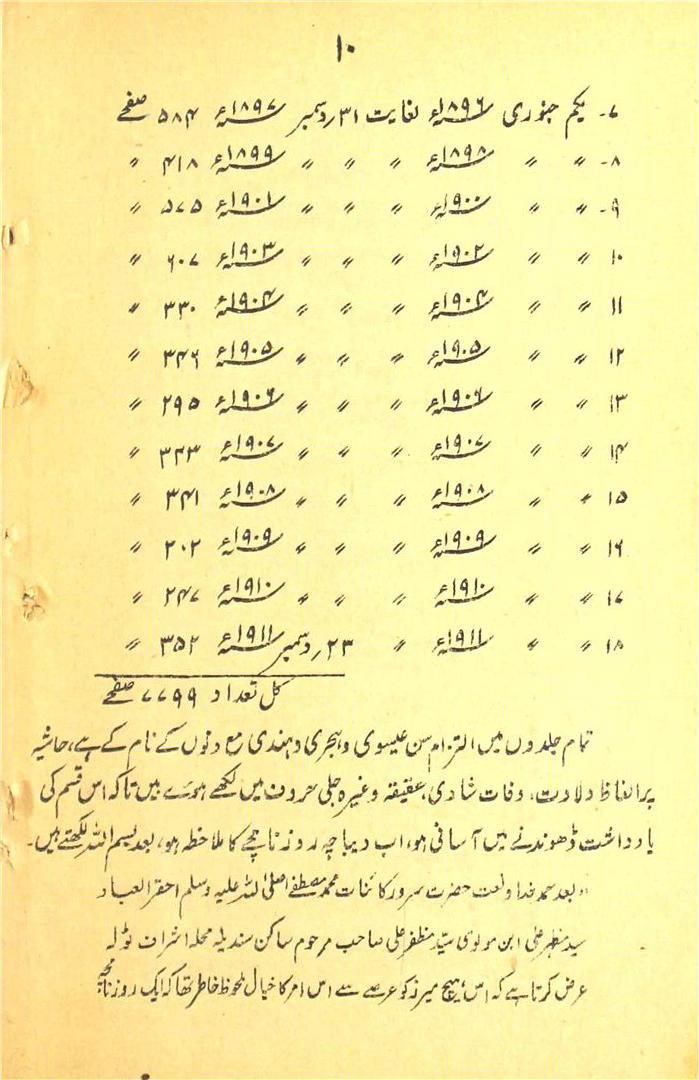 ۱۰
۷- یکم جنوری ۱۸۹۶ء لغایت ۳۱؍دسمبر ۱۸۹۷ء ۵۸۴ صفحے
۸- 〃 〃 ۱۸۹۸ء 〃 〃 〃 ۱۸۹۹ء ۴۱۸ 〃
۹- 〃 〃 ۱۹۰۰ء 〃 〃 〃 ۱۹۰۱ء ۵۷۵ 〃
۱۰ 〃 〃 ۱۹۰۲ء 〃 〃 〃 ۱۹۰۳ء ۶۰۷ 〃
۱۱ 〃 〃 ۱۹۰۴ء 〃 〃 〃 ۱۹۰۴ء ۳۳۰ 〃
۱۲ 〃 〃 ۱۹۰۵ء 〃 〃 〃 ۱۹۰۵ء ۳۴۶ 〃
۱۳ 〃 〃 ۱۹۰۶ء 〃 〃 〃 ۱۹۰۶ء ۲۹۵ 〃
۱۴ 〃 〃 ۱۹۰۷ء 〃 〃 〃 ۱۹۰۷ء ۳۴۳ 〃
۱۵ 〃 〃 ۱۹۰۸ء 〃 〃 〃 ۱۹۰۸ء ۳۴۱ 〃
۱۶ 〃 〃 ۱۹۰۹ء 〃 〃 〃 ۱۹۰۹ء ۲۰۲ 〃
۱۷ 〃 〃 ۱۹۱۰ء 〃 〃 〃 ۱۹۱۰ء ۲۴۷ 〃
۱۸ 〃 〃 ۱۹۱۱ء 〃 ۲۳؍دسمبر ۱۹۱۱ء ۳۵۲ 〃
کل تعداد ۷۷۹۹ صفحے
تمام جلدوں میں التزام سن عیسوی و ہجری و ہندی مع دنوں کے نام کے ہے، حاشیہ
پر الفاظ ولادت، وفات شادی، عقیقہ وغیرہ جلی حروف میں لکھے ہوئے ہیں تاکہ اس قسم کی
یادداشت ڈھونڈنے میں آسانی ہو، اب دیباچہ روزنامچے کا ملاحظہ ہو، بعد بسم اللہ لکھتے ہیں۔
"بعد حمد خدا و نعت حضرت سرور کائنات محمد مصطفےٰ صلی اللہ علیہ وسلم احقر العباد
سید مظہر علی ابن مولوی سید مظفر علی صاحب مرحوم ساکن سندیلہ محلہ اشراف ٹولہ
عرض کرتا ہے کہ اس ہیچ میرز کو عرصے سے اس امر کا خیال ملحوظ خاطر تھا کہ ایک روزنامچہ